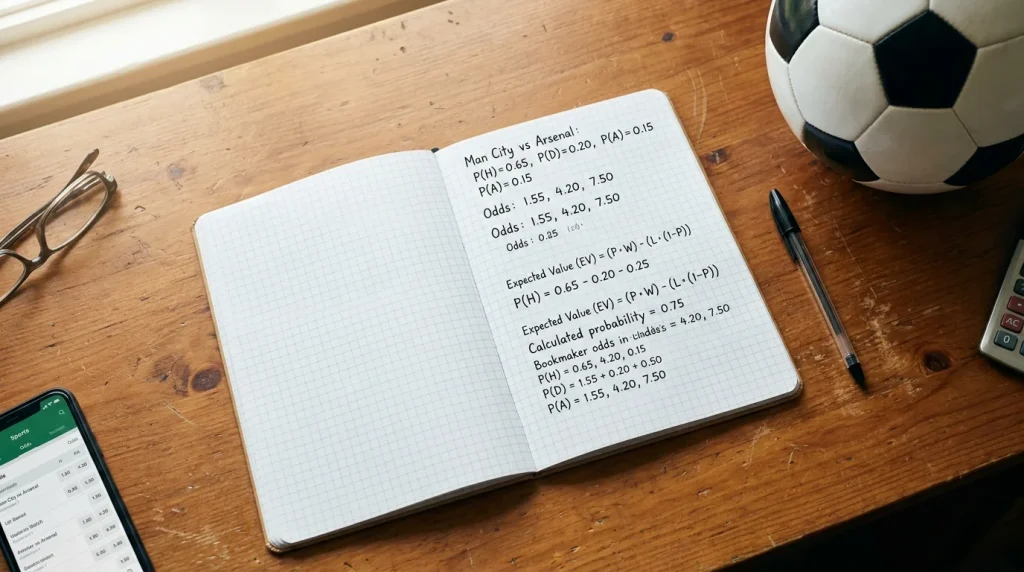 Man City vs Arsenal:
P(H)=0.65, P(D)=0.20, P(A)=0.15
P(A)=0.15
Odds: 1.55, 4.20, 7.50
Odds: 1.55, 4.20, 7.50
Odds: 0.25
Expected Value (EV) = (P·W) - (L·(1-P))
P(H) = 0.65 - 0.20 - 0.25
Expected Value (EV) = (P·W) - (L·(1-P))
Calculated probability = 0.75
Bookmaker odds in = 4.20, 7.50
P(H) = 0.65, 4.20, 0.15
P(D) = 1.55 + 0.20 + 0.50
P(A) = 1.55, 4.20, 7.50
Sports
Odds
City vs Arsenal
vs Arsenal
AC
0